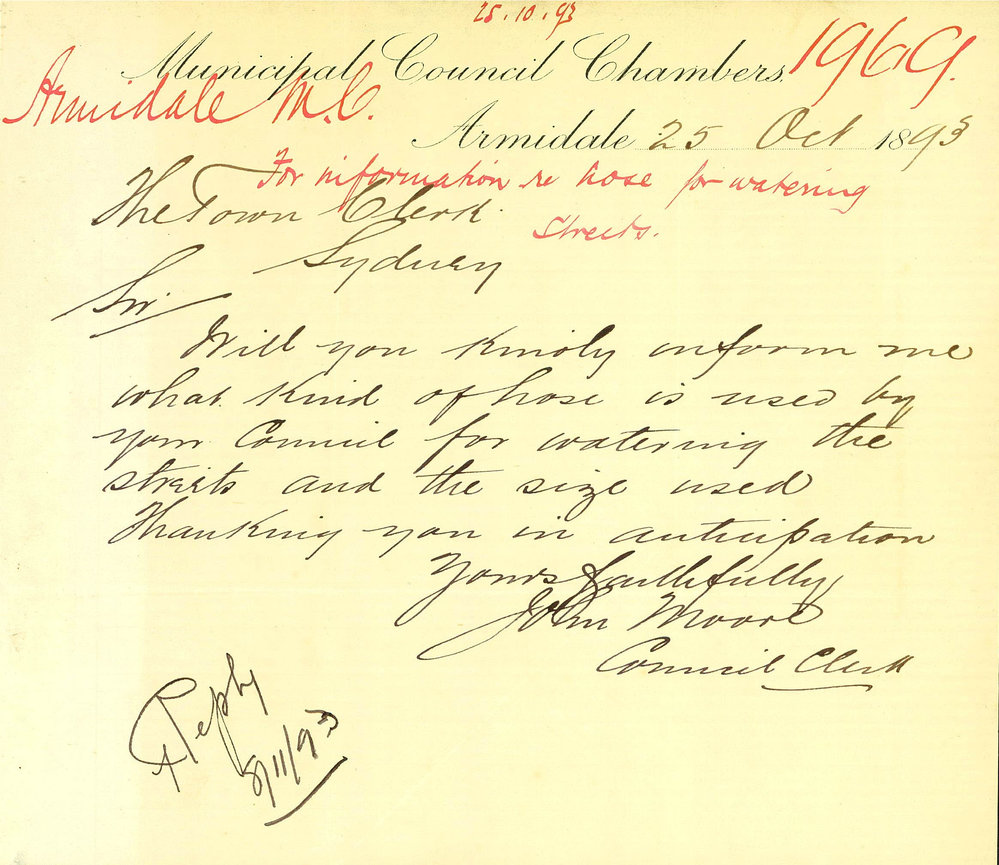 25.10.93
Municipal Council Chambers.
1969.
Armidale M.C.
Armidale 25 Oct 1893
For information re hose for watering
streets.
The Town Clerk.
Sydney
Sir.
Will you kindly inform me
what kind of hose is used by
your Council for watering the
streets and the size used
Thanking you in anticipation
Yours faithfully
John Moore
Council Clerk
Reply
8/11/93